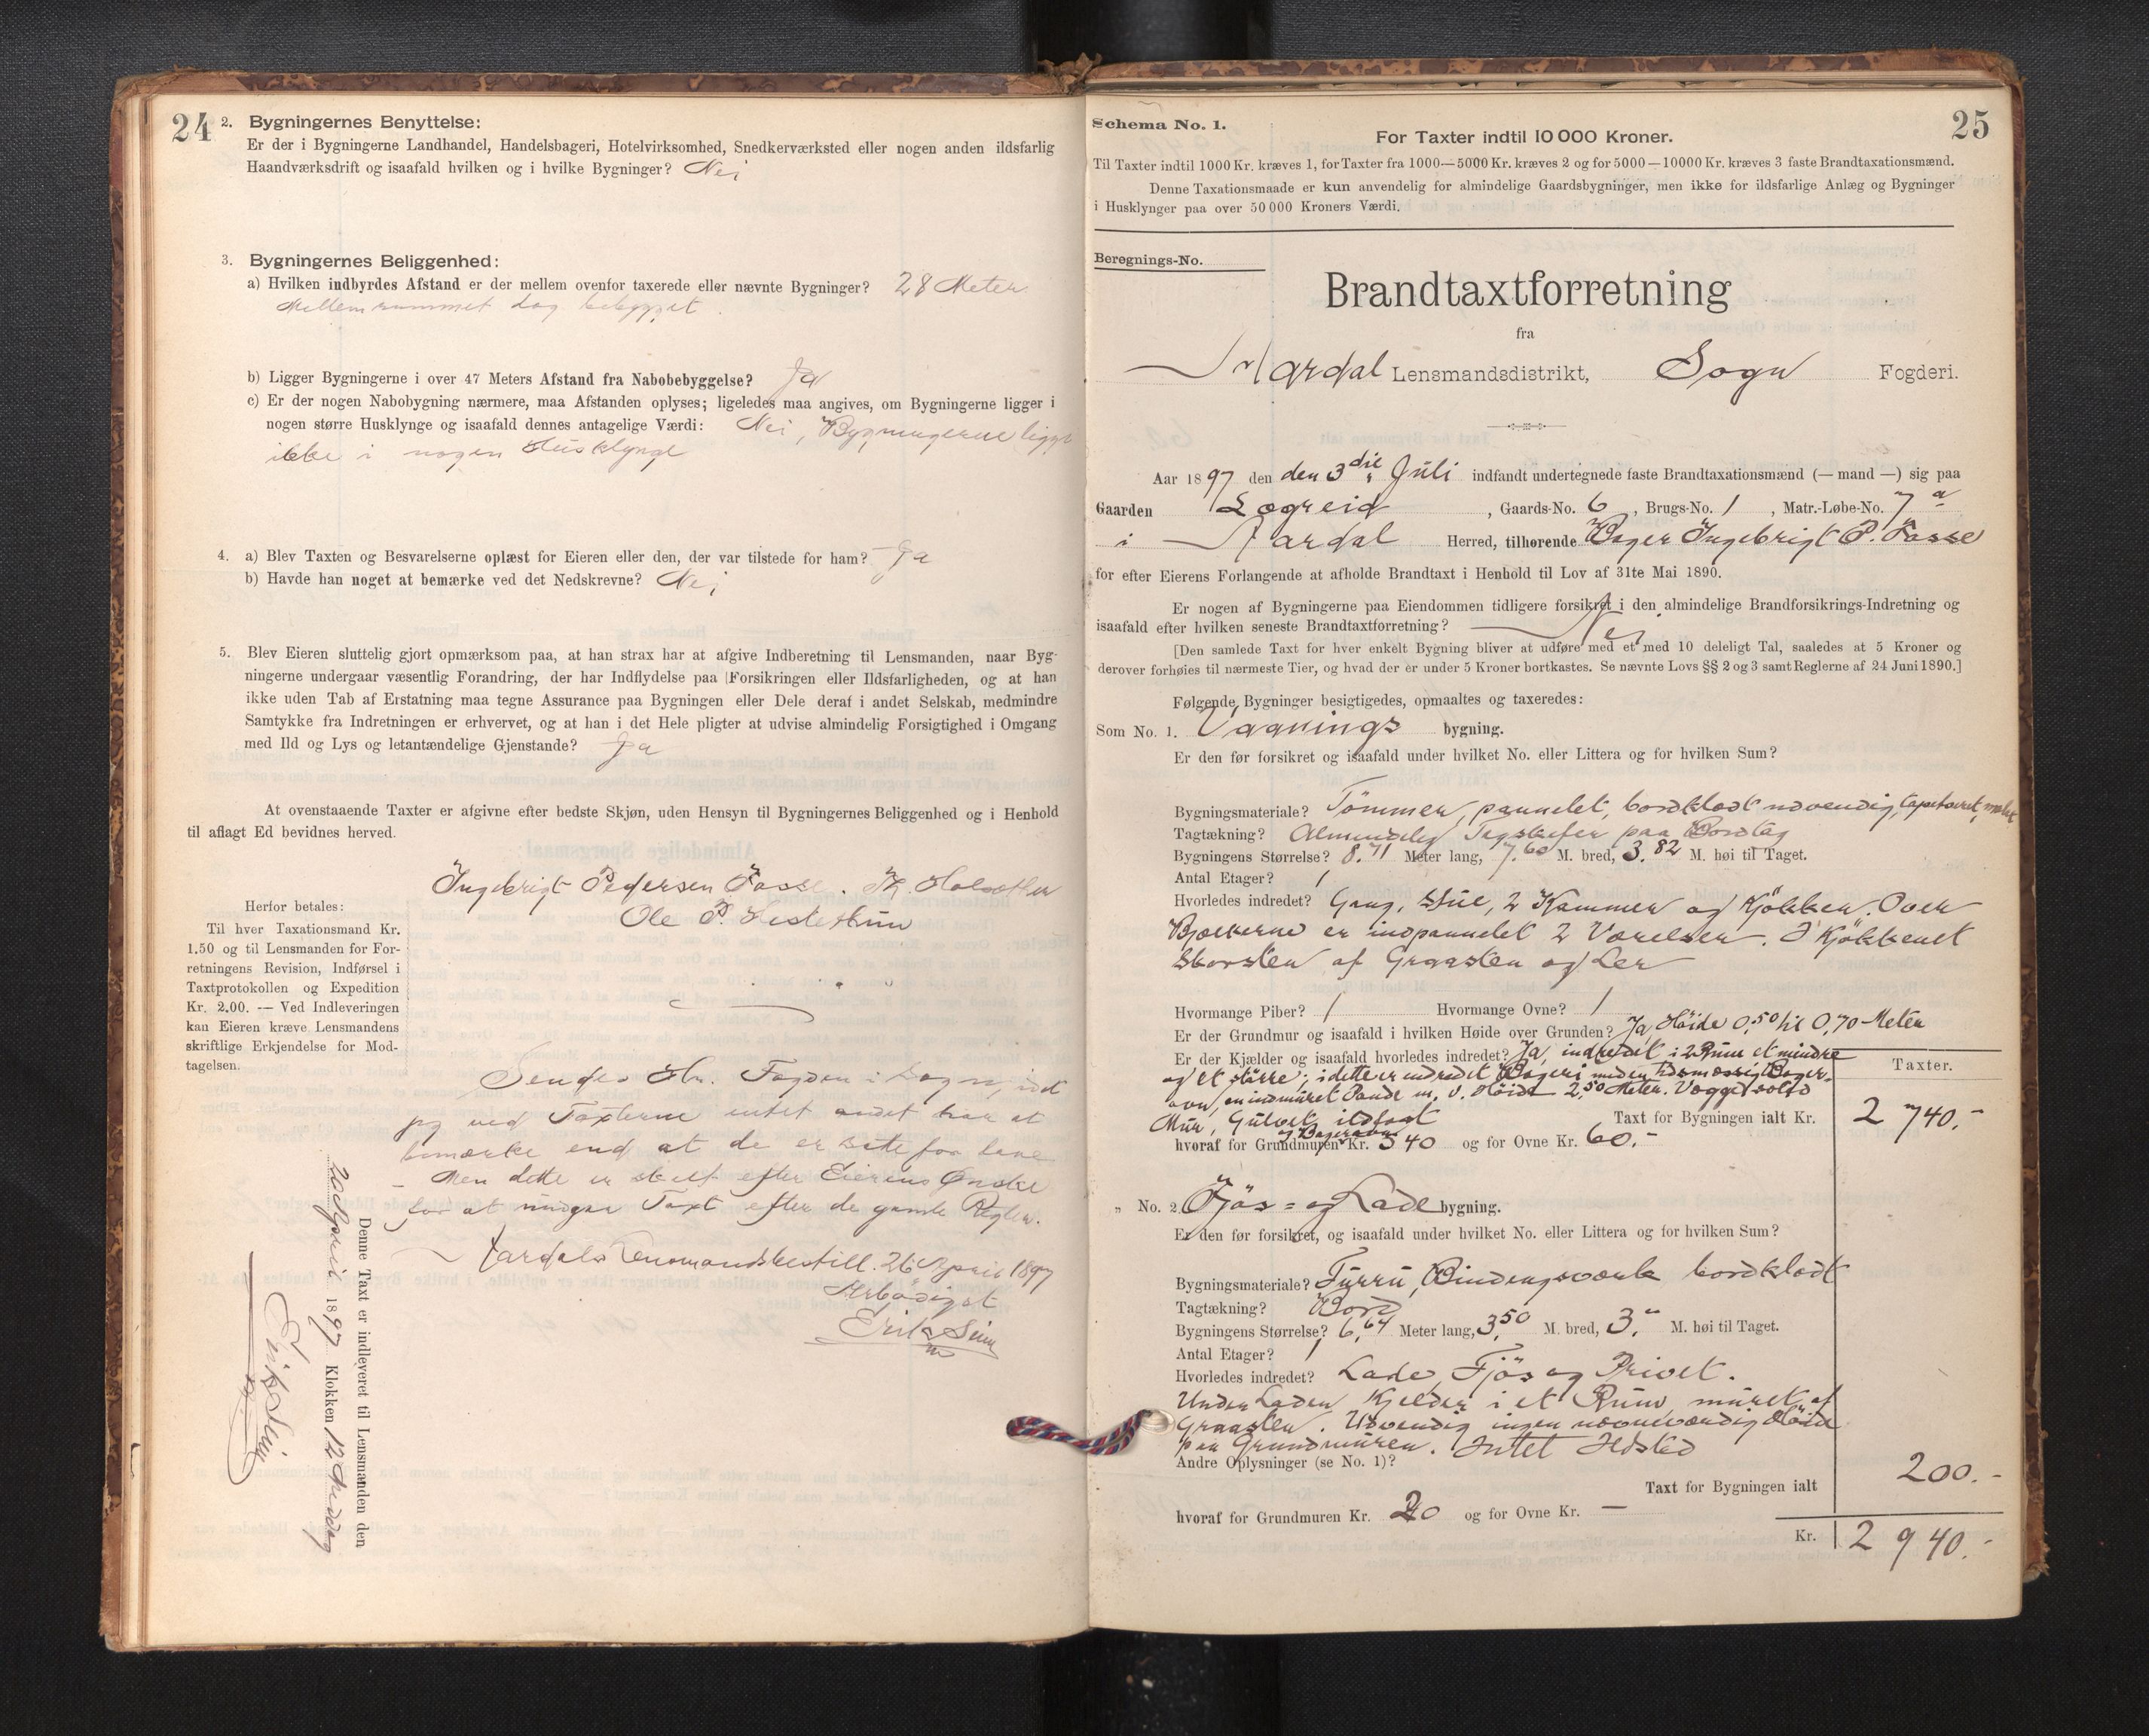 24
2. Bygningernes Benyttelse:
Er der i Bygningerne Landhandel, Handelsbageri, Hotelvirksomhed, Snedkerværksted eller nogen anden ildsfarlig
Haandværksdrift og isaafald hvilken og i hvilke Bygninger? Nei
3. Bygningernes Beliggenhed:
a) Hvilken indbyrdes Afstand er der mellem ovenfor taxerede eller nævnte Bygninger? 28 Meter
Mellemrummet dog bebygget.
b) Ligger Bygningerne i over 47 Meters Afstand fra Nabobebyggelse? Ja
c) Er der nogen Nabobygning nærmere, maa Afstanden oplyses; ligeledes maa angives, om Bygningerne ligger i
nogen større Husklynge og isaafald dennes antagelige Værdi: Nei, Bygningerne ligger
ikke i nogen Husklynge
4. a) Blev Taxten og Besvarelserne oplæst for Eieren eller den, der var tilstede for ham? Ja
b) Havde han noget at bemærke ved det Nedskrevne? Nei
5. Blev Eieren sluttelig gjort opmærksom paa, at han strax har at afgive Indberetning til Lensmanden, naar Byg-
ningerne undergaar væsentlig Forandring, der har Indflydelse paa Forsikringen eller Ildsfarligheden, og at han
ikke uden Tab af Erstatning maa tegne Assurance paa Bygningen eller Dele deraf i andet Selskab, medmindre
Samtykke fra Indretningen er erhvervet, og at han i det Hele pligter at udvise almindelig Forsigtighed i Omgang
med Ild og Lys og letantændelige Gjenstande? Ja
At ovenstaaende Taxter er afgivne efter bedste Skjøn, uden Hensyn til Bygningernes Beliggenhed og i Henhold
til aflagt Ed bevidnes herved.
Ingebrigt Pedersen Fosse. Th. Holsæther
Ole P. Hestethun
Herfor betales:
Til hver Taxationsmand Kr.
1.50 og til Lensmanden for For-
retningens Revision, Indførsel i
Taxtprotokollen og Expedition
Kr. 2.00. — Ved Indleveringen
kan Eieren kræve Lensmandens
skriftlige Erkjendelse for Mod-
tagelsen.
Sendes Hr. Fogden i Sogn, idet
jeg ved Taxterne intet andet har at
bemærke end at de er satte for lave
- Men dette er skeet efter Eierens Ønske
for at undgaa Taxt efter de gamle Regler.
Aardals Lensmandsbestill. 26 April 1897
Ærbødigst
Erik Seim
Denne Taxt er indleveret til Lensmanden den
20 April 1897 Klokken 12 Middag
Erik Seim
25
Schema No. 1.
For Taxter indtil 10 000 Kroner.
Til Taxter indtil 1000 Kr. kræves 1, for Taxter fra 1000—5000 Kr. kræves 2 og for 5000—10000 Kr. kræves 3 faste Brandtaxationsmænd.
Denne Taxationsmaade er kun anvendelig for almindelige Gaardsbygninger, men ikke for ildsfarlige Anlæg og Bygninger
i Husklynger paa over 50 000 Kroners Værdi.
Beregnings-No.
Brandtaxtforretning
fra
Aardal Lensmandsdistrikt, Sogn Fogderi.
Aar 1897 den den 3die Juli indfandt undertegnede faste Brandtaxationsmænd (— mand —) sig paa
Gaarden Lægreid, Gaards-No. 6, Brugs-No. 1, Matr.-Løbe-No. 7a
i Aardal Herred, tilhørende Bager Ingebrigt P. Fosse
for efter Eierens Forlangende at afholde Brandtaxt i Henhold til Lov af 31te Mai 1890.
Er nogen af Bygningerne paa Eiendommen tidligere forsikret i den almindelige Brandforsikrings-Indretning og
isaafald efter hvilken seneste Brandtaxtforretning? Nei
[Den samlede Taxt for hver enkelt Bygning bliver at udføre med et med 10 deleligt Tal, saaledes at 5 Kroner og
derover forhøies til nærmeste Tier, og hvad der er under 5 Kroner bortkastes. Se nævnte Lovs §§ 2 og 3 samt Reglerne af 24 Juni 1890.]
Følgende Bygninger besigtigedes, opmaaltes og taxeredes:
Som No. 1. Vaanings bygning.
Er den før forsikret og isaafald under hvilket No. eller Littera og for hvilken Sum?
Bygningsmateriale? Tømmer, pannelet, bordklædt udvendig, tapetseret, malet
Tagtækning? Almindelig Tagskifer paa Bordtag
Bygningens Størrelse? 8.71 Meter lang, 7.60 M. bred, 3.82 M. høi til Taget.
Antal Etager? 1
Hvorledes indredet? Gang, Stue, 2 Kammer og Kjøkken. Over
Bjælkerne er indpannelet 2 Værelser. I Kjøkkenet
Skorsten af Graasten og Ler
Hvormange Piber? 1 Hvormange Ovne? 1
Er der Grundmur og isaafald i hvilken Høide over Grunden? Ja, Høide 0,50 til 0,70 Meter
Er der Kjælder og isaafald hvorledes indredet? Ja, indredet i 2 Rum et mindre
og et større; i dette er indredet Bageri med en tidsmæssig Bager-
ovn, en indmuret Pande m. v. Høide 2,50 Meter. Vægge solid
Mur, Gulvet ildfast
Taxter.
Taxt for Bygningen ialt Kr. 2 740.-
og Bagerovn
hvoraf for Grundmuren Kr. 540 og for Ovne Kr. 60.-
" No. 2 Fjøs= og Lade bygning.
Er den før forsikret, og isaafald under hvilket No. eller Littera og for hvilken Sum?
Bygningsmateriale? Furru, Bindingsværk bordklædt
Tagtækning? Bord
Bygningens Størrelse? 6,64 Meter lang, 3,50 M. bred, 3.- M. høi til Taget.
Antal Etager? 1
Hvorledes indredet? Lade, Fjøs og Privet.
Under Laden Kjelder i et Rum, muret af
Graasten. Udvendig ingen nævneværdig Høide
paa Grundmuren. Intet Ildsted
Andre Oplysninger (se No. 1)?
Taxt for Bygningen ialt 200.-
hvoraf for Grundmuren Kr. 20 og for Ovne Kr. —
Kr. 2 940.-